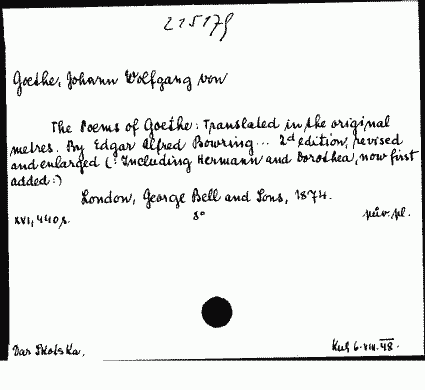 215179
Goethe, Johann Wolfgang von
The Poems of Goethe: Translated in the original
metres. By Edgar Alfred Bowring... 2d edition, revised
and enlarged (: Including Hermann and Dorothea, now first
added:)
London, George Bell and Sons, 1874.
XVI, 440 s. 8° pův. pl.
Dar Skotska. 6.VIII.48.